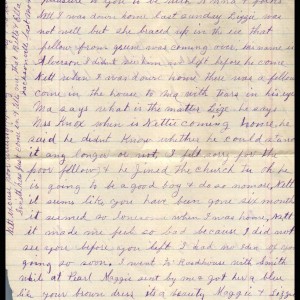 pleasure to you to
Nett I was down some last Sunday Lizzie was
not well but she braced up in the eve that
fellow from was coming over his name is
Alverson I didnt see him yet left before he come
Nett when I was down home there was a fellow
come in the house to Ma with tears in his eyes
Ma says what is the matter Lige he says
Mrs Knox when is Nettie coming home, he
said he didnt Know whether he could stand
it any longer or not, I felt sorry for the
poor fellow, & he Joined the church in oh he
is going to be a good boy & do so no more, Nett
it seems like you have been gone six months
it seemed so lonesome when I was home, Nett
it made me feel so bad because I did not
see you before you left I had no idea of you
going so soon. I went to Roadhouse with Smith
while at Pearl Maggie sent by me & got her a blue
like your brown dress its a beauty Maggie & Lizzie